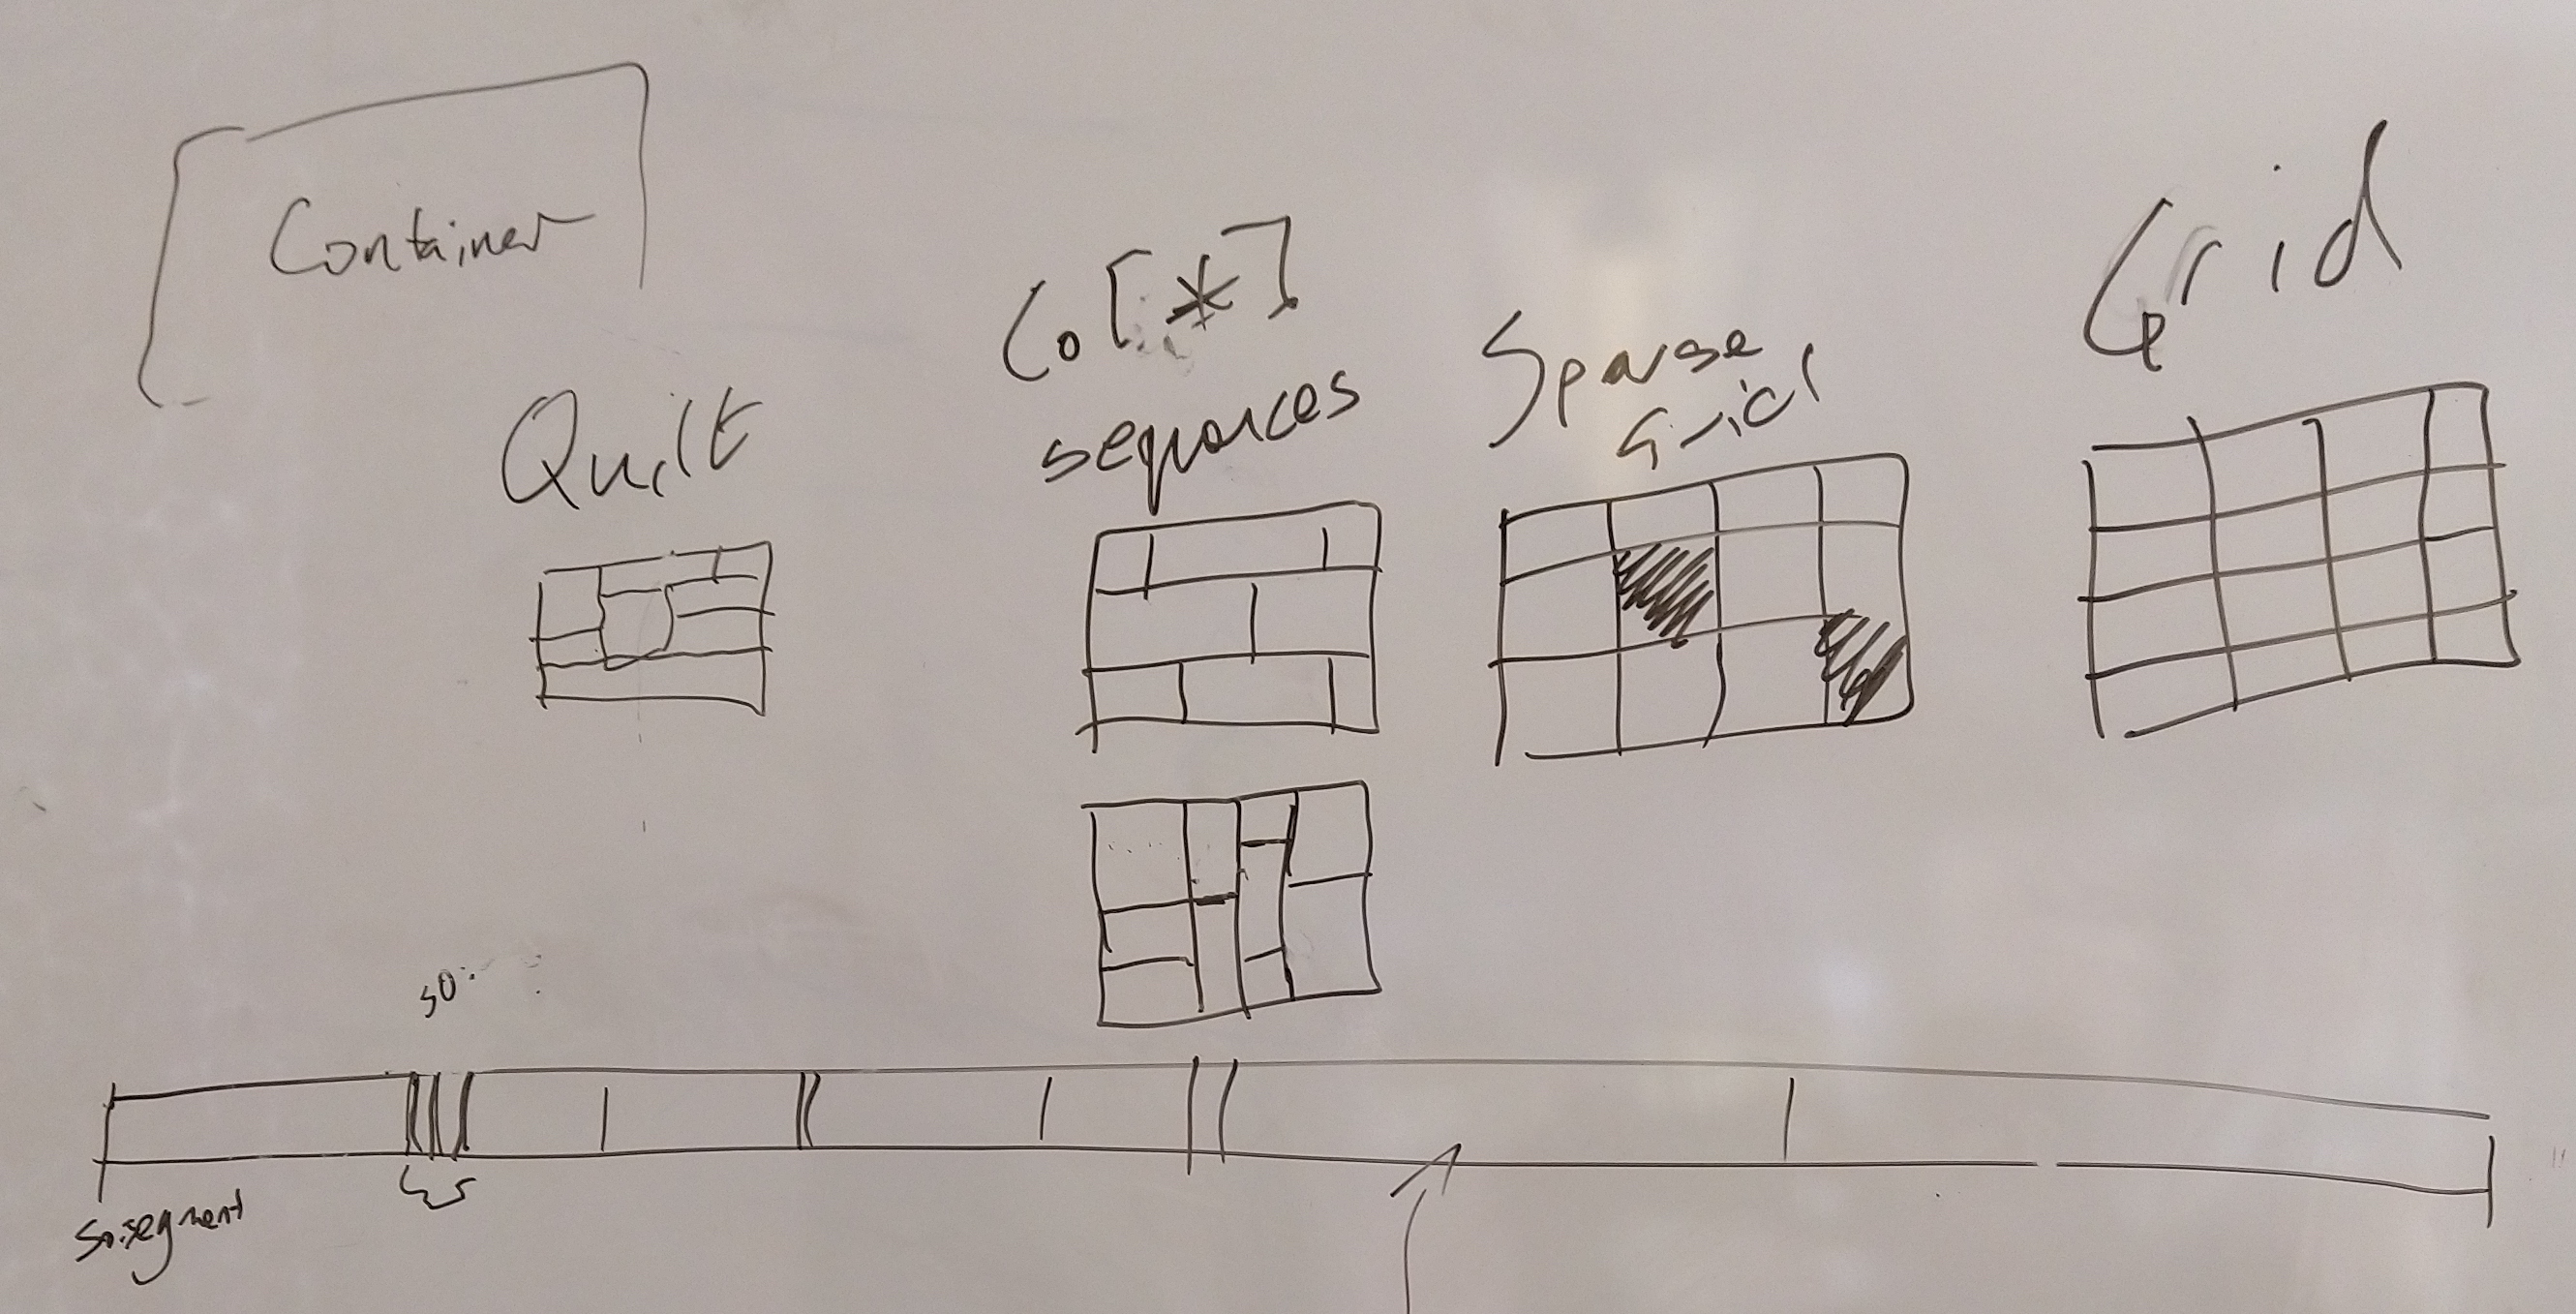 Container
Quilt
Co[*]
sequences
Sparse
Grid
Grid
so.segment